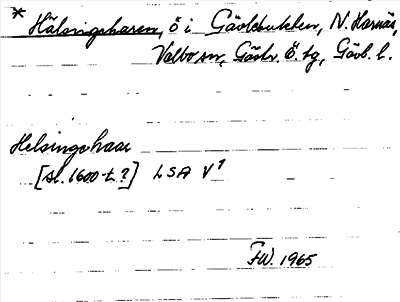 * Hälsingeharen, ö i Gävlebukten, N. Harnäs,
Valbo sn, Gästr. ö. tg, Gävb. l.
Helsingehaar
[sl. 1600-t.?] LSA V¹
FW. 1965